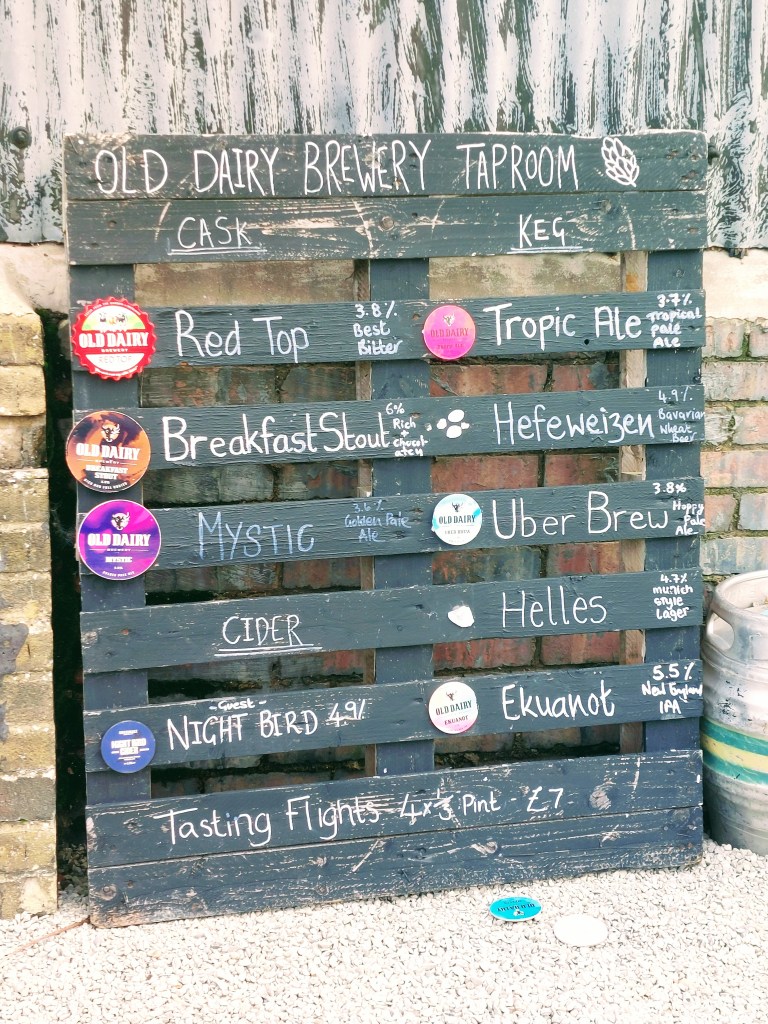 OLD DAIRY BREWERY TAPROOM
CASK
KEG
OLD DAIRY
BREWERY
Red Top
3.8%
Best
Bitter
OLD DAIRY
Tropic Ale
3.7%
Tropical
Pale
Ale
OLD DAIRY
BREWERY
BREAKFAST
STOUT
Breakfast Stout
6%
Rich
+
chocol
atey
Hefeweizen
4.9%
Bavarian
Wheat
Beer
OLD DAIRY
BREWERY
MYSTIC
MYSTIC
3.6%
Golden Pale
Ale
OLD DAIRY
UBER BREW
Uber Brew
3.8%
Hoppy
Pale
Ale
CIDER
Helles
4.7%
munich
style
Lager
NIGHT BIRD
CIDER
- Guest -
NIGHT BIRD 4.9%
OLD DAIRY
EKUANOT
Ekuanot
5.5%
New England
IPA
Tasting Flights - 4x⅓ Pint - £7